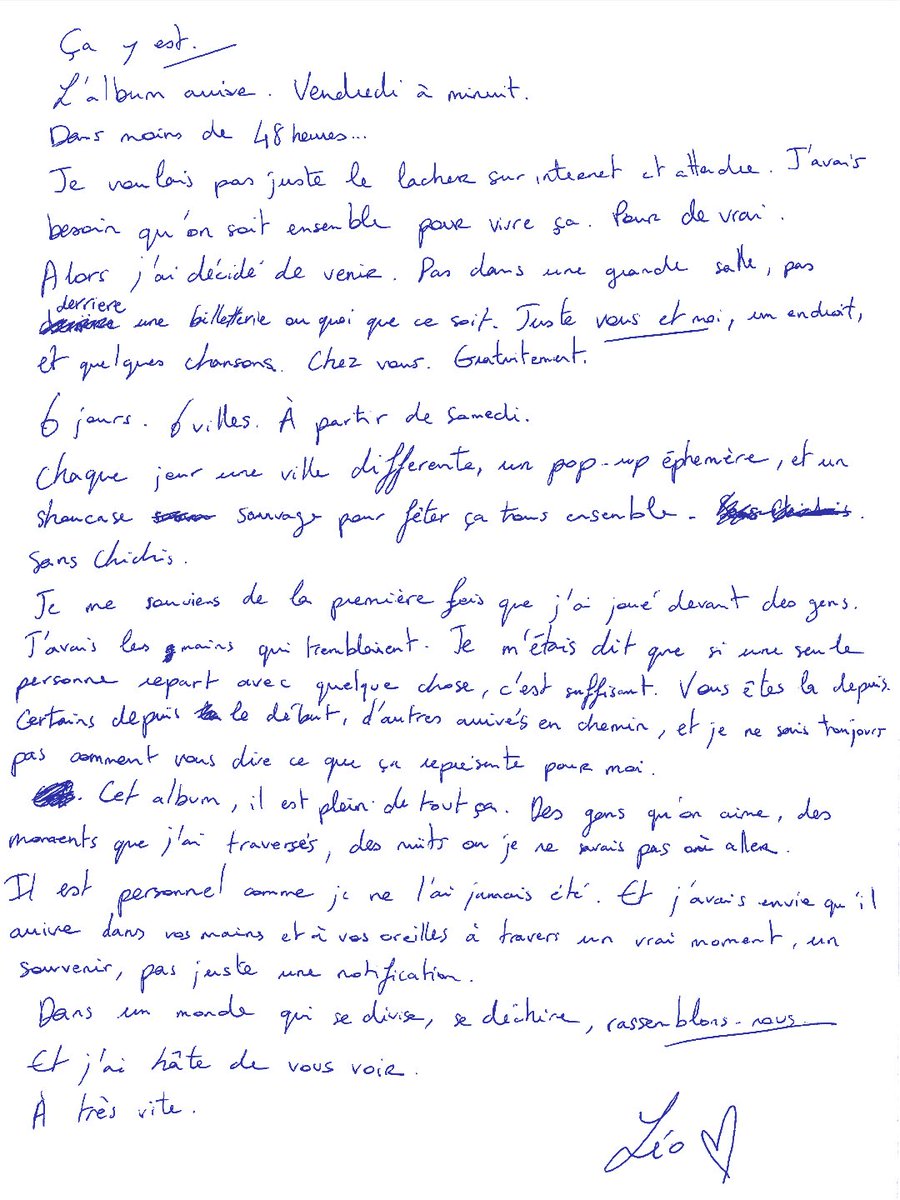 Ça y est.
L'album arrive. Vendredi à minuit.
Dans moins de 48 heures...
Je voulais pas juste le lacher sur internet et attendre. J'avais
besoin qu'on soit ensemble pour vivre ça. Pour de vrai.
Alors j'ai décidé de venir. Pas dans une grande salle, pas
derriere une billetterie ou quoi que ce soit. Juste vous et moi, un endroit,
et quelques chansons. Chez vous. Gratuitement.
6 jours. 6 villes. À partir de samedi.
Chaque jour une ville differente, un pop-up éphemère, et un
showcase sauvage pour fêter ça tous ensemble.
Sans chichis.
Je me souviens de la première fois que j'ai joué devant des gens.
J'avais les mains qui tremblaient. Je m'étais dit que si une seule
personne repart avec quelque chose, c'est suffisant. Vous êtes la depuis.
Certains depuis le début, d'autres arrivés en chemin, et je ne sais toujours
pas comment vous dire ce que ça représente pour moi.
Cet album, il est plein de tout ça. Des gens qu'on aime, des
moments que j'ai traversés, des nuits ou je ne savais pas où aller.
Il est personnel comme je ne l'ai jamais été. Et j'avais envie qu'il
arrive dans vos mains et à vos oreilles à travers un vrai moment, un
souvenir, pas juste une notification.
Dans un monde qui se divise, se déchire, rassemblons-nous
Et j'ai hâte de vous voir.
À très vite.
Léo